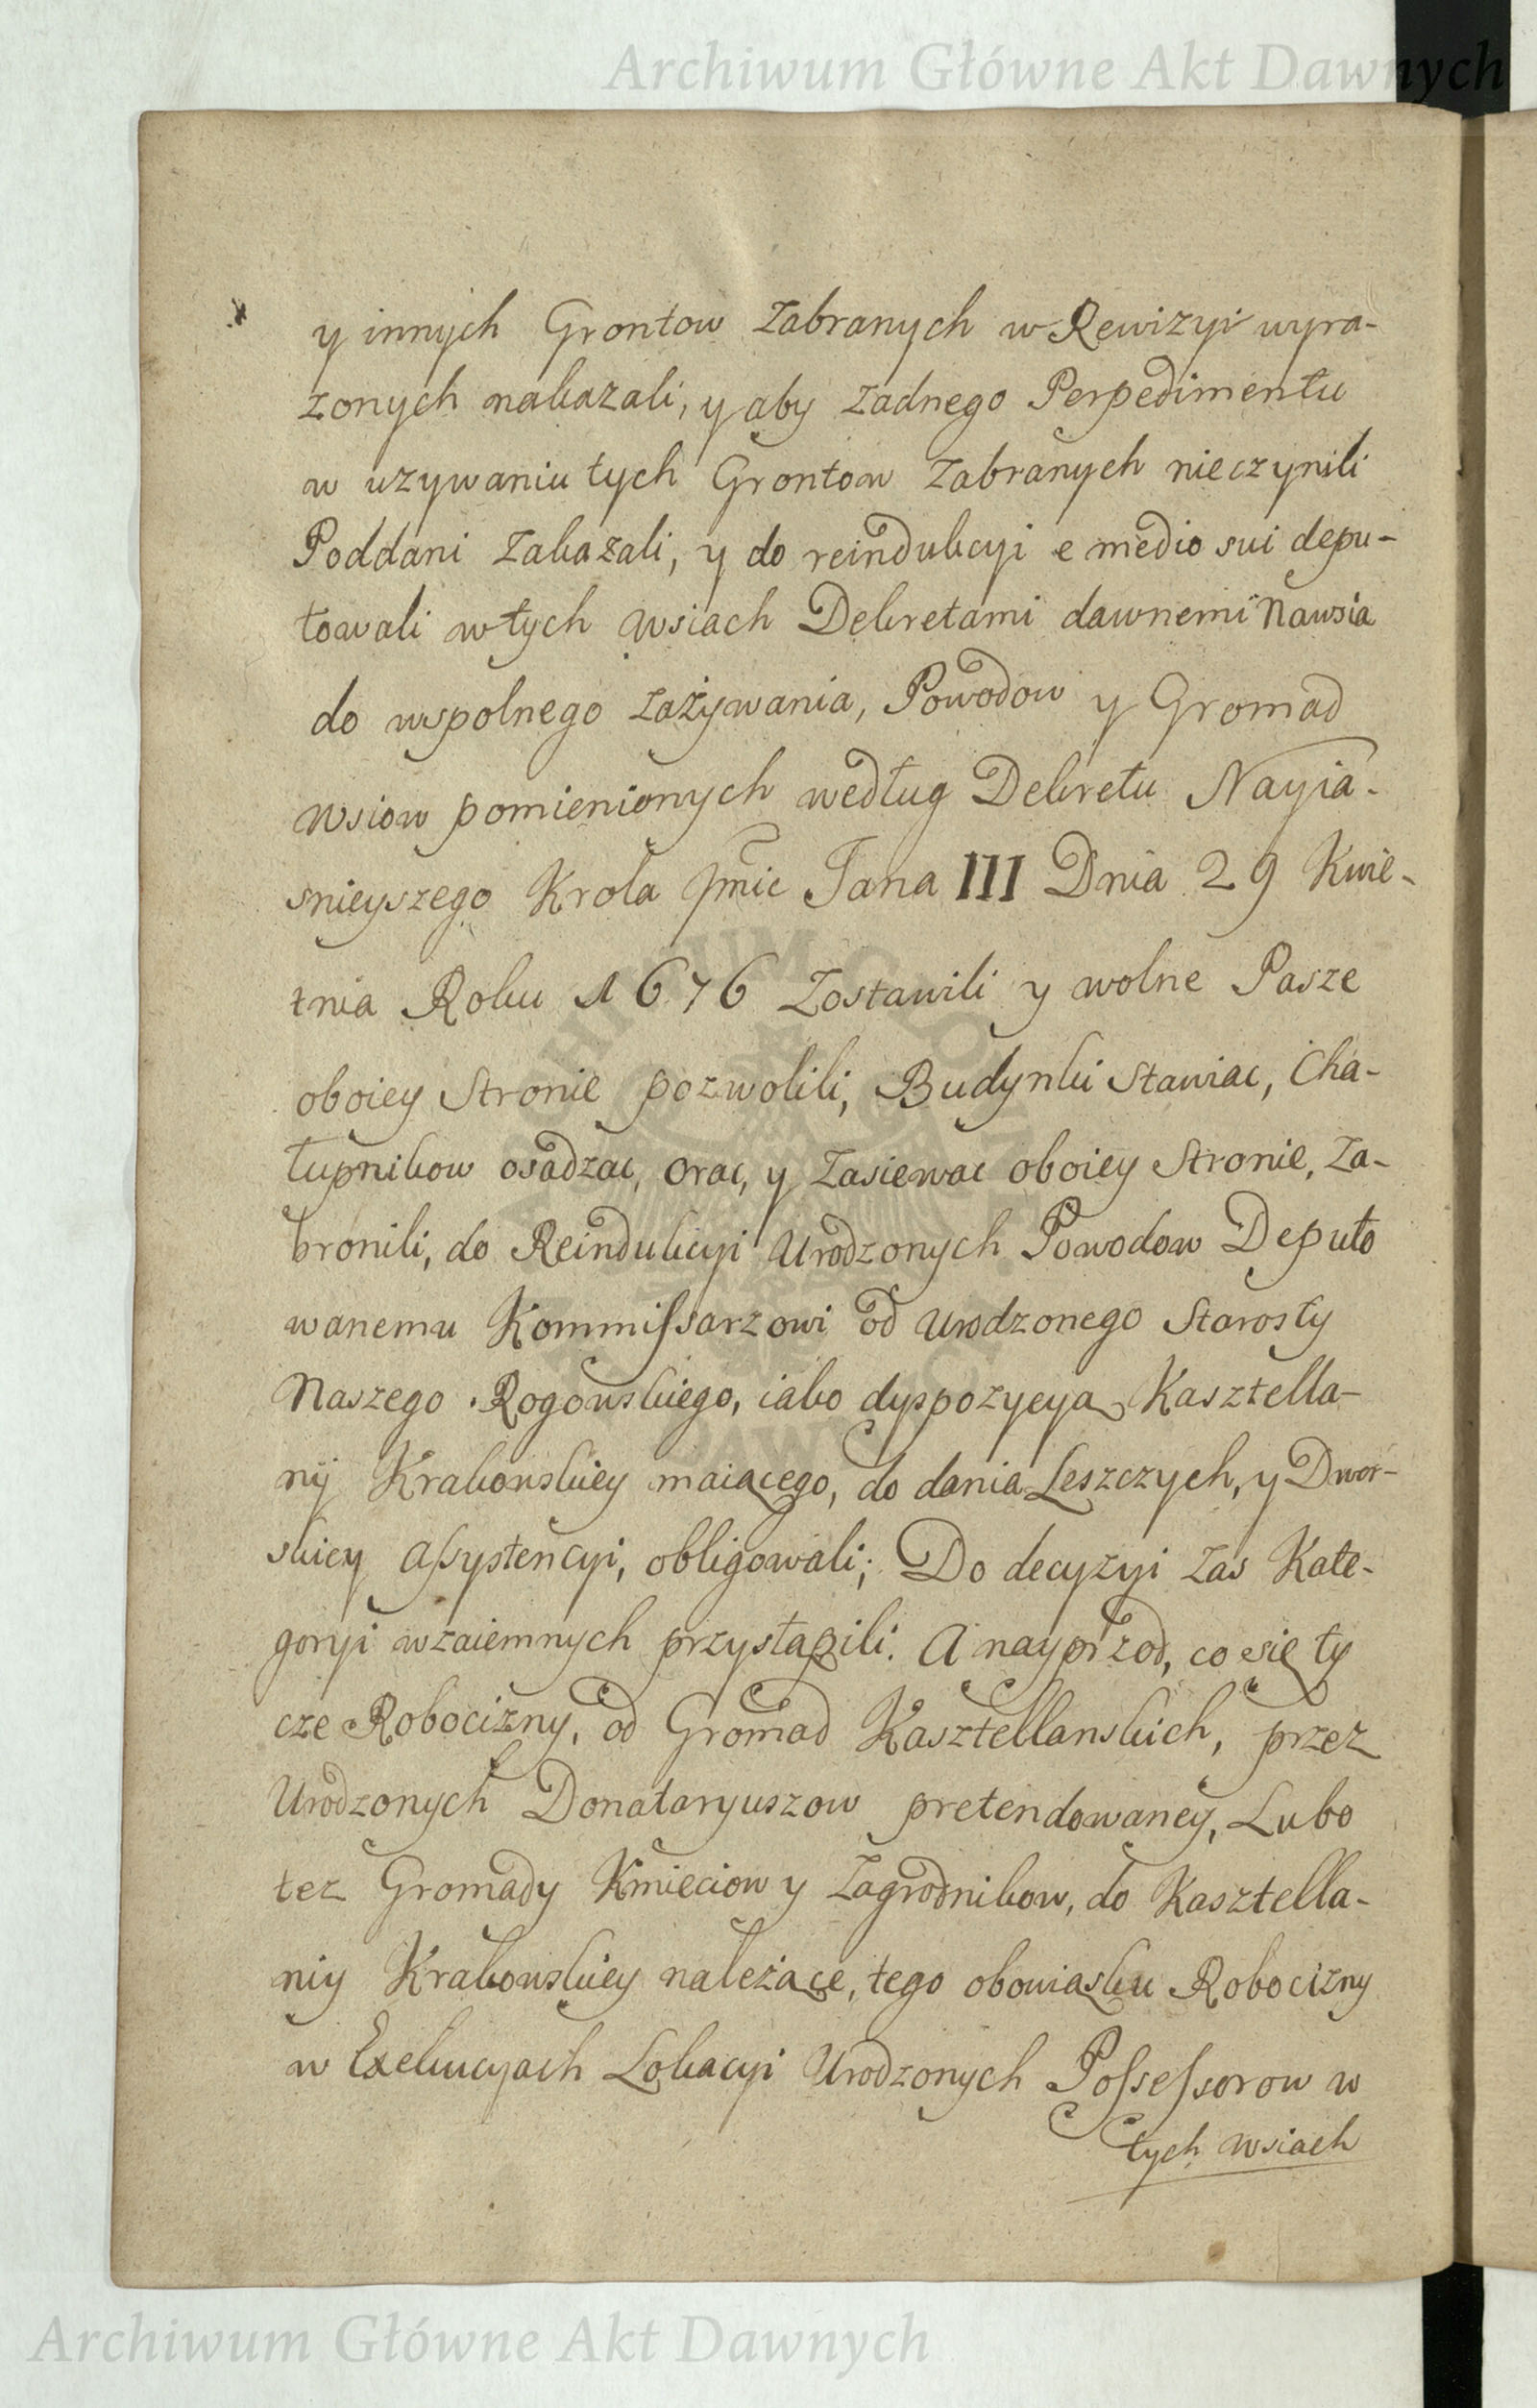 Archiwum Główne Akt Dawnych
y innych Grontow zabranych w Rewizyi wyra-
zonych nakazali, y aby zadnego Perpedimentu
w uzywaniu tych Grontow zabranych nieczynili
Poddani zakazali, y do reindukcyi e medio sui depu-
towali w tych wsiach Dekretami dawnemi Nawsia
do wspolnego zażywania, Powodow y Gromad
wsiow pomienionych według Dekretu Nayia-
snieyszego Krola Jmic Jana III Dnia 29 Kwie-
tnia Roku 1676 zostawili y wolne Pasze
oboiey Stronie pozwolili, Budynki stawiac, Cha-
łupnikow osadzac, orac, y zasiewac oboiey Stronie, za-
bronili, do Reindukcyi Urodzonych Powodow Deputo
wanemu Kommiſsarzowi od Urodzonego Starosty
Naszego Rogowskiego, iako dyspozycyą Kasztella-
nÿ Krakowskiey maiącego, do dania Leszczych, y Dwor-
skiey Aſsystencyi, obligowali; Do decyzyi zas Kate-
goryi wzaiemnych przystąpili. A nayprzod, co się ty
cze Robocizny, od Gromad Kasztellanskich, przez
Urodzonych Donataryuszow pretendowaney, Lubo
tez Gromady Kmieciow y Zagrodnikow, do Kasztella-
niy Krakowskiey należące, tego obowiąsku Robocizny
w Exekucyach Lokacyi Urodzonych Poſseſsorow w
tych wsiach
Archiwum Główne Akt Dawnych